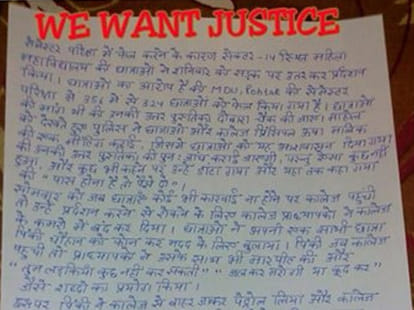 WE WANT JUSTICE
सेमेस्टर परीक्षा में फेल करने के कारण सेक्टर-14 स्थित महिला
महाविद्यालय की छात्राओं ने शनिवार को सड़क पर उतर कर प्रदर्शन
किया। छात्राओं का आरोप है की MDU, Rohtak की सेमेस्टर
परीक्षा में 356 में से 324 छात्राओं को फेल किया गया है। छात्राओं
की मांग थी की उनकी उत्तर पुस्तिका दोबारा चैक की जाए। माहौल
को देखते हुए पुलिस ने छात्राओं और कॉलेज प्रिंसिपल ऊषा मलिक
की जिसमे छात्राओं को यह आश्वासन दिया गया
की उनकी उत्तर पुस्तिका की पुनः जांच कराई जाएगी, परन्तु ऐसा कुछ नहीं
हुआ, और कुछ भी कहने पर उन्हें डांटा गया और यहां तक कहा गया
की "पास होना है तो पैसे दो"।
सोमवार को जब छात्राएं कोई भी कारवाई ना होने पर कालेज पहुंची
तो उन्हें प्रदर्शन करने से रोकने के लिए कालेज प्राध्यापकों ने कालेज
के कमरों में बंद कर दिया। छात्राओं ने अपनी एक साथी छात्रा
पिंकी चौहान को फोन कर मदद के लिए बुलाया। पिंकी जब कालेज
पहुंची तो प्राध्यापकों ने उसके साथ भी मारपीट की और
"तुम लड़कियां कुछ नहीं कर सकती" "जल कर मरोगी या कूद कर"
जैसे शब्दों का प्रयोग किया।
इसपर पिंकी ने कालेज से बाहर जाकर पैट्रोल लिया और कालेज